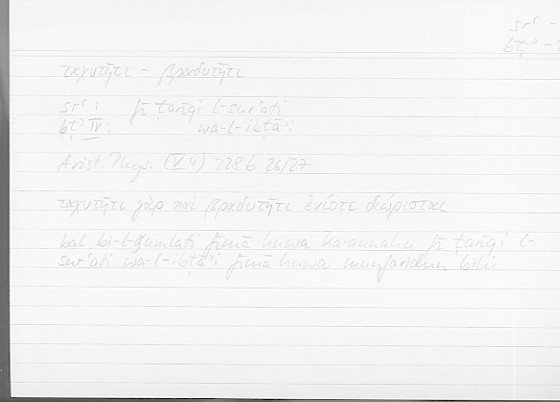 srʿ -
bṭʾ -
ταχυτῆτι – βραδυτῆτι
srʿ: fī ṭarīqi l-surʿati
bṭʾ IV: wa-l-ibṭāʾi
Arist. Phys. (V 4) 228 b 26/27
ταχυτῆτι γὰρ καὶ βραδυτῆτι ἐνίοτε διώρισται
bal bi-l-ǧumlati fīmā huwa ka-annahu fī ṭarīqi l-
surʿati wa-l-ibṭāʾi fīmā huwa munfaridun